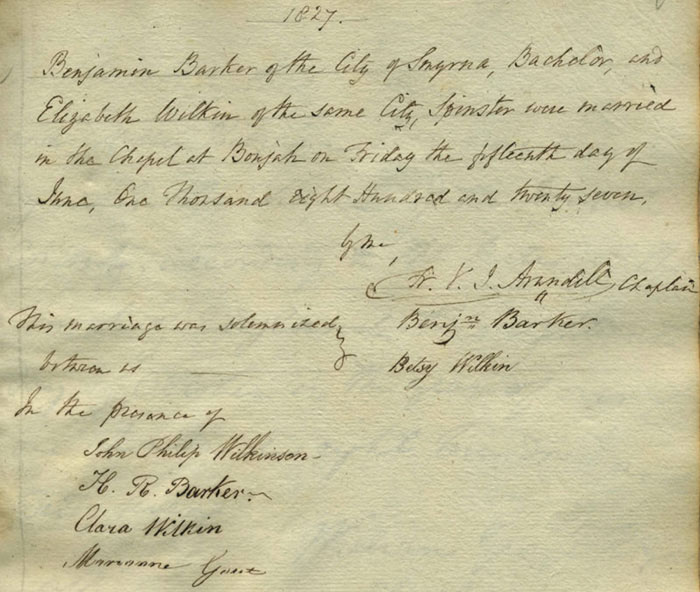 1827.
Benjamin Barker of the City of Smyrna, Bachelor, and
Elizabeth Wilkin of the same City, Spinster were married
in the Chapel at Bonjah on Friday the fifteenth day of
June, One Thousand eight Hundred and twenty seven,
by me,
F. V. J. Arundell Chaplain
This marriage was solemnized } Benjn Barker.
between us } Betsy Wilkin
In the presence of
John Philip Wilkinson
H. R. Barker
Clara Wilkin
Marianne